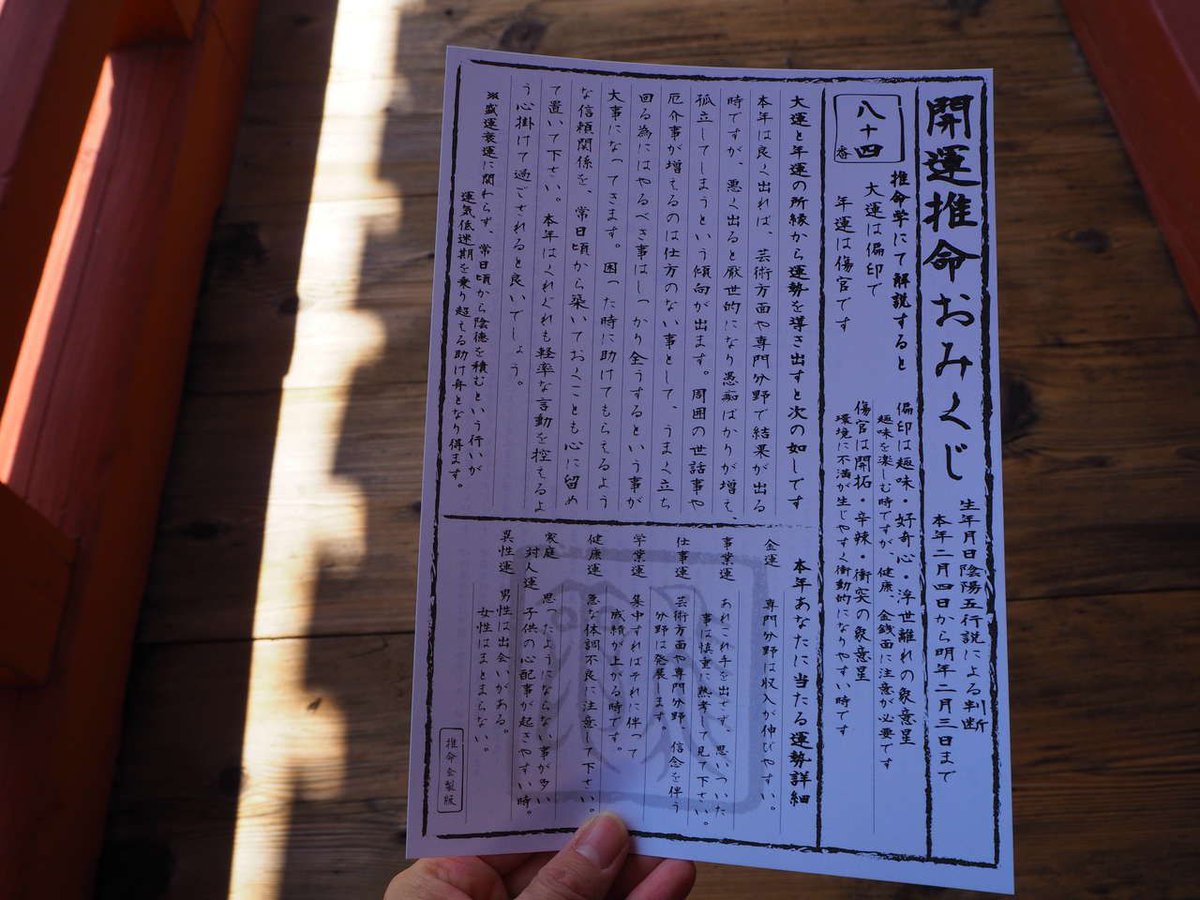 開運推命おみくじ
生年月日陰陽五行説による判断
本年二月四日から明年二月三日まで
八十四番
推命学にて解説すると
大運は偏印で
年運は傷官です
偏印は趣味・好奇心・浮世離れの象意星
趣味を楽しむ時ですが、健康、金銭面に注意が必要です
傷官は開拓・辛辣・衝突の象意星
環境に不満が生じやすく衝動的になりやすい時です
大運と年運の所縁から運勢を導き出すと次の如しです
本年は良く出れば、芸術方面や専門分野で結果が出る
時ですが、悪く出ると厭世的になり愚痴ばかりが増え、
孤立してしまうという傾向が出ます。周囲の世話事や
厄介事が増えるのは仕方のない事として、うまく立ち
回る為にはやるべき事はしっかり全うするという事が
大事になってきます。困った時に助けてもらえるよう
な信頼関係を、常日頃から築いておくことも心に留め
て置いて下さい。本年はくれぐれも軽率な言動を控えるよ
う心掛けて過ごされると良いでしょう。
※盛運衰運に関わらず、常日頃から陰徳を積むという行いが
運気低迷期を乗り超える助け舟となり得ます。
本年あなたに当たる運勢詳細
金運 専門分野は収入が伸びやすい。
事業運 あれこれ手を出さず。思いついた
事は慎重に熟考して見て下さい。
仕事運 芸術方面や専門分野、信念を伴う
分野は発展します。
学業運 集中すればそれに伴って
成績が上がる時です。
健康運 急な体調不良に注意して下さい。
家庭 思ったようにならない事が多い
対人運 子供の心配事が起きやすい時。
異性運 男性は出会いがある。
女性はまとまらない。
推命会製版